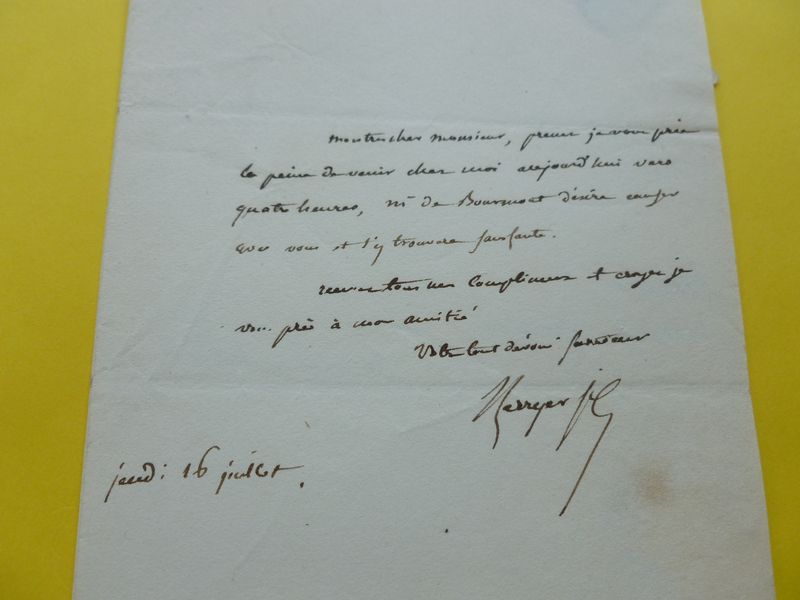 mon très cher monsieur, prenez je vous prie
la peine de venir chez moi aujourd'hui vers
quatre heures, Mr de Bourmont désire causer
avec vous et s'y trouvera sans faute.
recevez tous mes compliments et croyez je
vous prie à mon amitié
Votre tout dévoué serviteur
Berryer fils
jeudi 16 juillet.